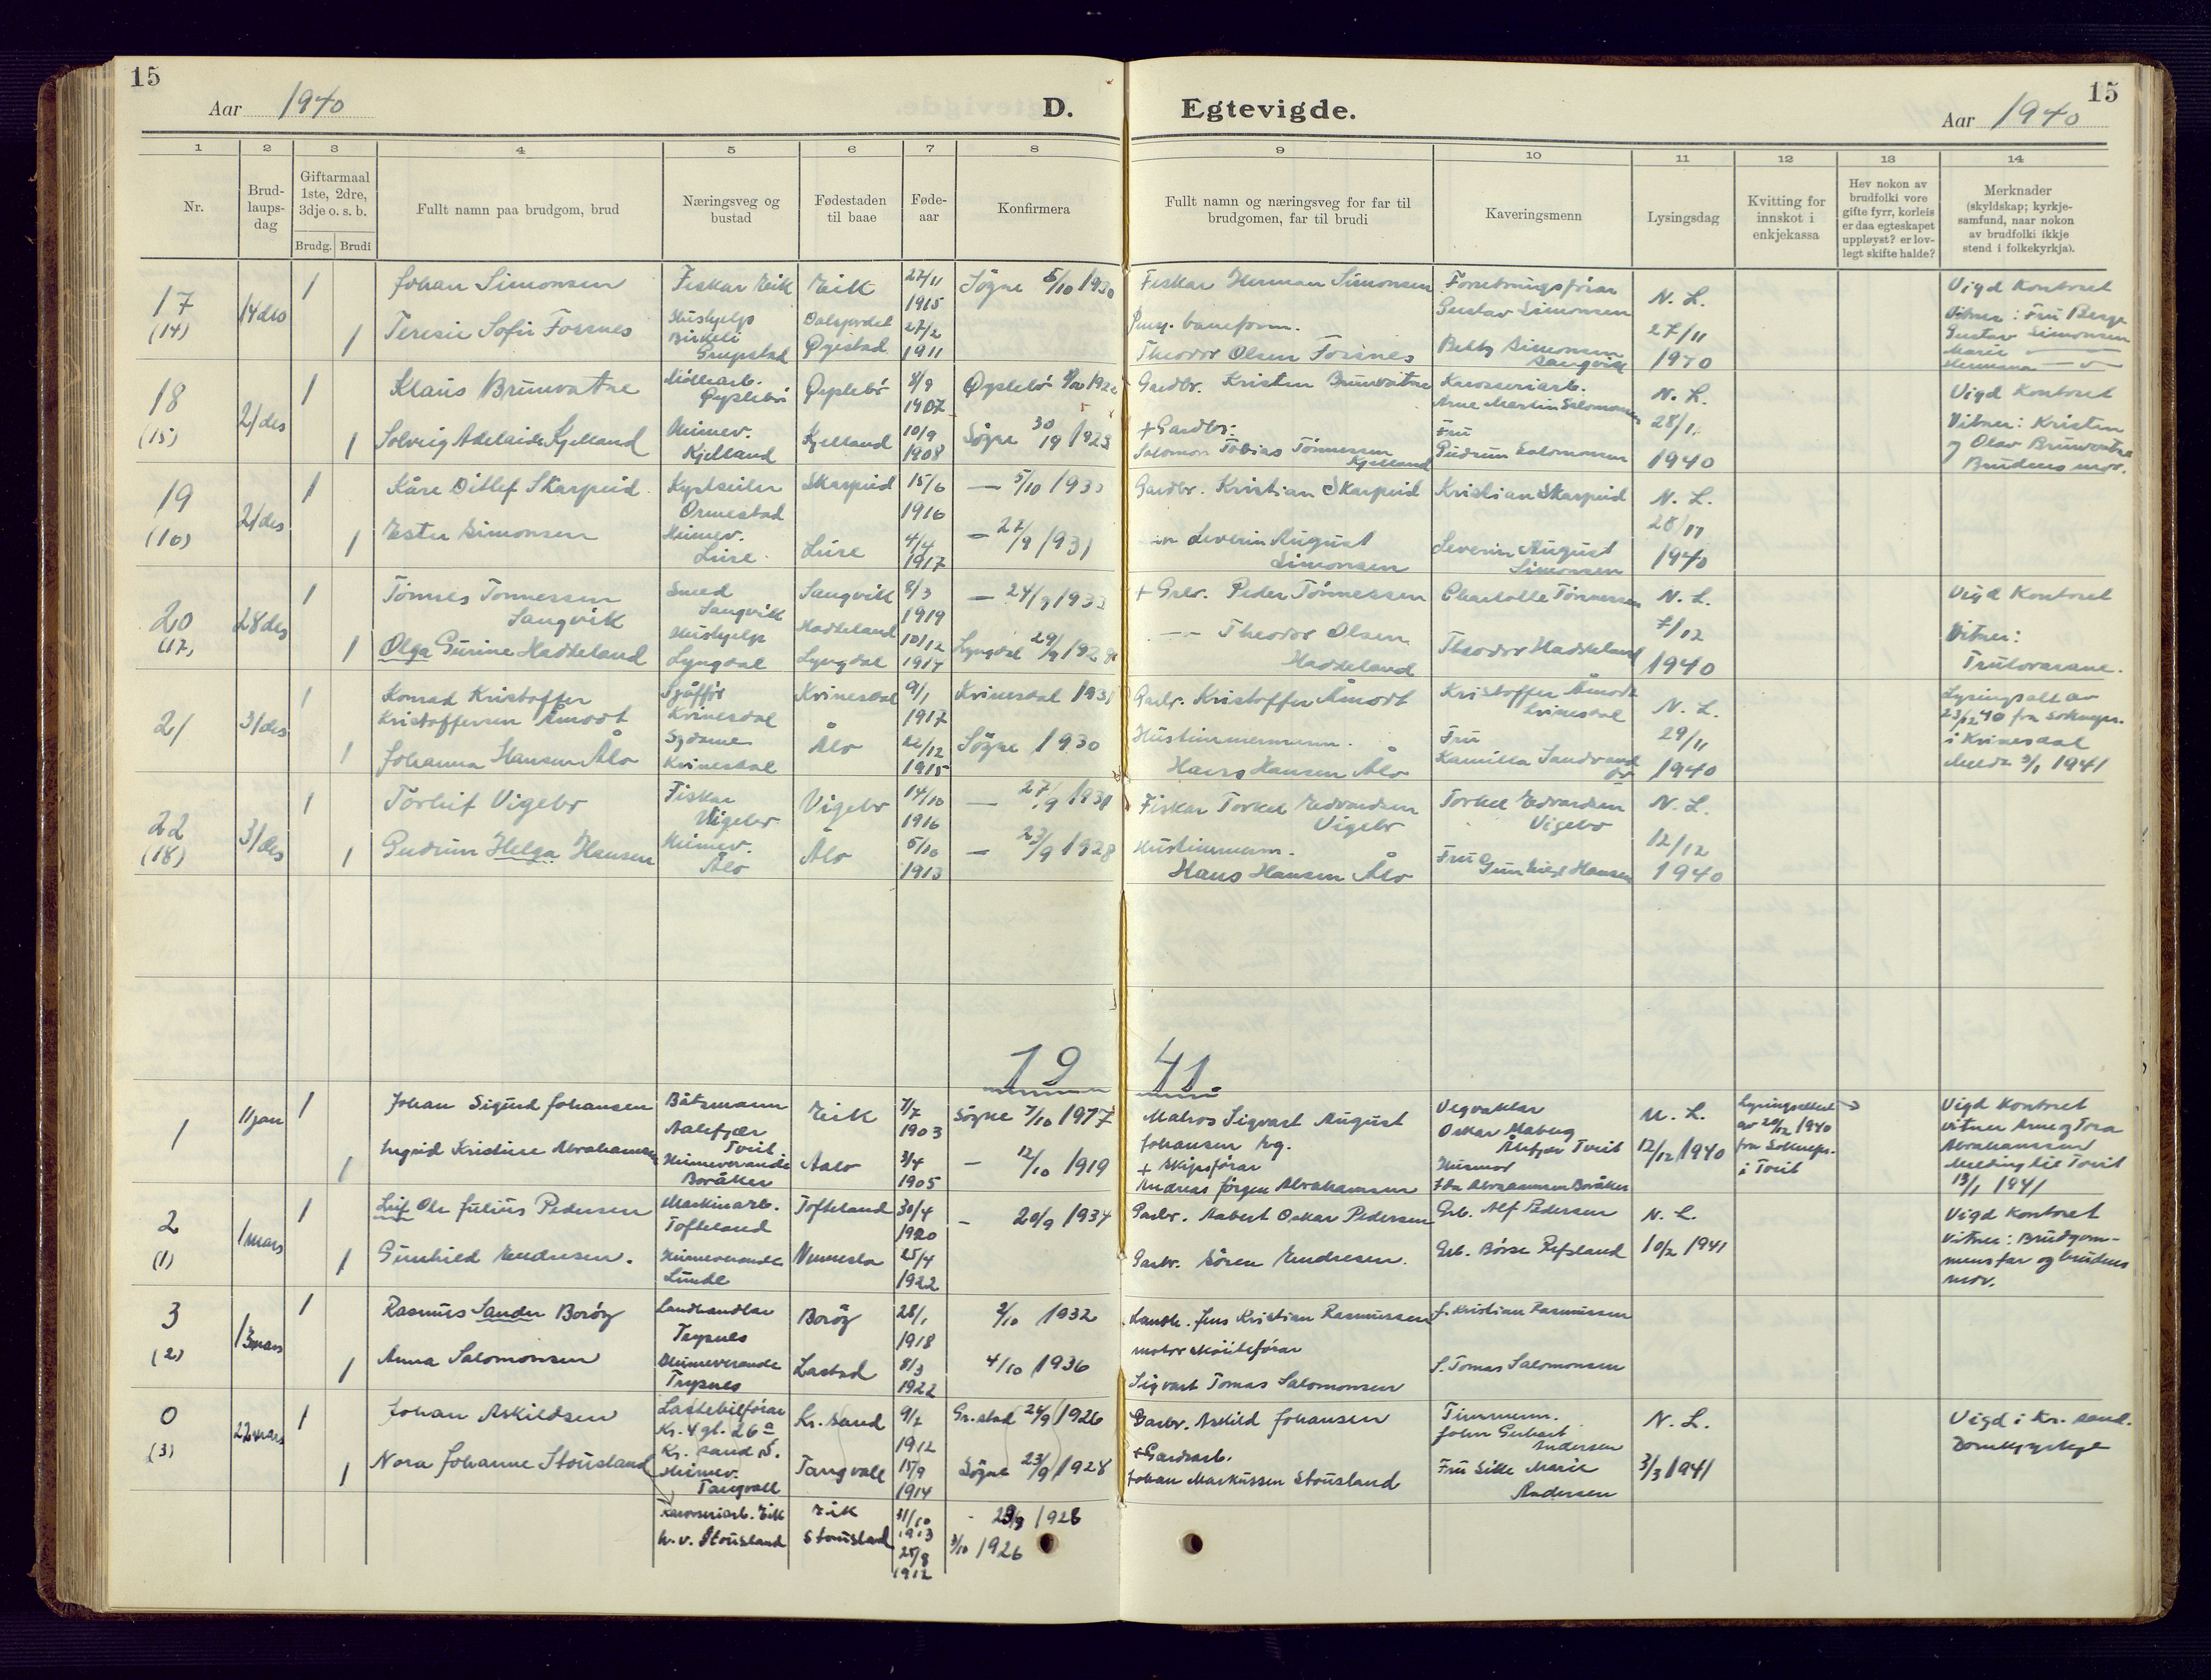 15
Aar 1940
D.
1 2 3 4 5 6 7 8
Nr.
Brud-
laups-
dag
Giftarmaal
1ste, 2dre,
3dje o. s. b.
Brudg. Brudi
Fullt namn paa brudgom, brud
Næringsveg og
bustad
Fødestaden
til baae
Føde-
aar
Konfirmera
17
(14)
14 des
1
Johan Simonsen
Fiskar Eik
Eik
27/11
1915
Søgne 5/10 1930
1
Teresie Sofie Fossnes
Hushjelp
Birkeli
Grupstad
Dalsfordet
Øyestad
27/2
1911
18
(15)
21 des
1
Klaus Brunvatne
Møllearb.
Øyslebø
Øyslebø
8/9
1907
Øyslebø
1
Solveig Adelaide Kjelland
Heimev.
Kjelland
Kjelland
10/9
1908
Søgne 30/9 1923
19
(16)
21 des
1
Kåre Ditlef Skarpeid
Ormestad
Skarpeid
15/6
1916
— 5/10 193
1
Ester Simonsen
Heimev.
Lure
Lure
4/4
1917
— 27/9 1931
20
(17)
28 des
1
Tønnes Tønnessen
Langvik
Smed
Langvik
Langvik
8/3
1919
— 24/9 1933
1
Olga Gurine Haddeland
Hushjelp
Lyngdal
Haddeland
Lyngdal
10/12
1914
Lyngdal 29/9 192
21
31 des
1
Konrad Kristoffer
Kristoffersen Åmodt
Sjåffør
Kvinesdal
Kvinesdal
9/1
1917
Kvinesdal 1931
1
Johanna Hansen Ålo
Sydame
Kvinesdal
Ålo
22/12
1915
Søgne 1930
22
(18)
31 des
1
Torleif Vigebo
Fiskar
Vigebo
Vigebo
14/10
1916
— 27/9 1931
1
Gudrun Helga Hansen
Heimev.
Ålo
Ålo
5/10
1913
— 23/9 1928
19
1
11 jan
1
Johan Sigurd Johansen
Båtsmann
Aalefjær
Tveit
Eik
7/7
1903
Søgne 7/10 1917
1
Ingrid Kristine Abrahamsen
Heimeverande
Boråker
Aalo
3/4
1905
— 12/10 1919
2
(1)
1 mars
1
Leif Ole Julius Pedersen
Maskinarb.
Tofteland
Tofteland
30/4
1920
— 20/9 1934
1
Gunhild Endresen.
Heimeverande
Lunde
Vennesla
25/4
1922
3
(2)
13 mars
1
Rasmus Sander Borøy
Landhandlar
Trysnes
Borøy
28/1
1918
2/10 1932
1
Anna Salomonsen
Heimeverande
Trysnes
Lastad
8/3
1922
4/10 1936
0
(3)
22 mars
1
Johan Askildsen
Lastebilførar
Kr. 4 gt. 26 a
Kr. sand S.
Kr. sand
9/7
1912
Gr.stad 26/9 1926
1
Nora Johanne Stousland
Heimev.
Tangvall
Tangvall
15/9
1914
Søgne 23/9 1928
Karosseriarb. Eik
Eik
31/10
1913
- 23/9 1928
h. v. Stousland
Stousland
25/8
1912
3/10 1926
15
Egtevigde.
Aar 1940
9 10 11 12 13 14
Fullt namn og næringsveg for far til
brudgomen, far til brudi
Kaveringsmenn
Lysingsdag
Kvitting for
innskot i
enkjekassa
Hev nokon av
brudfolki vore
gifte fyrr, korleis
er daa egteskapet
uppløyst? er lov-
legt skifte halde?
Merknader
(skyldskap; kyrkje-
samfund, naar nokon
av brudfolki ikkje
stend i folkekyrkja).
Fiskar Herman Simonsen
Forretningsførar
Gustav Simonsen
N. L.
27/11
1940
Vigd Kontoret
Vitner: Fru Berge
Gustav Simonsen
Marie — " —
— " —
Pens. baneform.
Theodor Olsen Fossnes
Betty Simonsen
Langvik
Gardbr. Kristen Brunvatne
Karosseriarb.
Arne Martin Salomonsen
N. L.
28/11
1940
Vigd Kontoret
Vitner: Kristen
og Olav Brunvatne
Brudens mor.
+ Gardbr.
Salomon Tobias Tønnessen
Kjelland
Fru
Gudrun Salomonsen
Gardbr. Kristian Skarpeid
Kristian Skarpeid
N. L.
28/11
1940
— " — Severin August
Simonsen
Severin August
Simonsen
+ Grbr. Peder Tønnessen
Charlotte Tønnessen
N. L.
7/12
1940
Vigd Kontoret
Vitner:
Trulovarane.
— " — Theodor Olsen
Haddeland
Theodor Haddeland
Grbr. Kristoffer Åmodt
Kristoffer Åmodt
Kvinesdal
N. L.
29/11
1940
Lysingsatt av
23/12 40 fra Soknepr.
i Kvinesdal
Meldt 3/1 1941
Hustimmermann.
Hans Hansen Ålo
Fru
Kamilla Sandvand
Fiskar Torkel Edvardsen
Vigebo
Torkel Edvardsen
Vigebo
N. L.
12/12
1940
Hustimmerm.
Hans Hansen Ålo
Fru Gunhild Hansen
41
Matros Sigvart August
Johansen
Vegvaktar
Oskar Moberg
Ålefjær Tveit
N. L.
12/12 1940
Lysingsattest
av 20/12 1940
fra Soknepr.
i Tveit
Vigd Kontoret
vitner Arne og Tora
Abrahamsen
Melding til Tveit
13/1 1941
+ Skipsførar
Andreas Jørgen Abrahamsen
Husmor
Ida Abrahamsen Boråker
Garbr. Robert Oskar Pedersen
Grb. Alf Pedersen
N. L.
10/2 1941
Vigd Kontoret
Vitner: Brudgom-
mens far og brudens
mor.
Garbr. Søren Endresen.
Grb. Børse Repsland
Landh. Jens Kristian Rasmussen
J. Kristian Rasmussen
motorskøiteførar
Sigvart Tomas Salomonsen
S. Tomas Salomonsen
Garbr. Askild Johansen
Timmerm.
John Gerhart
Andersen
N. L.
3/3 1941
Vigd i Kr. sand.
Domkyrkje
+ Gardsarb.
Johan Markussen Stousland
Fru Silke Marie
Andersen